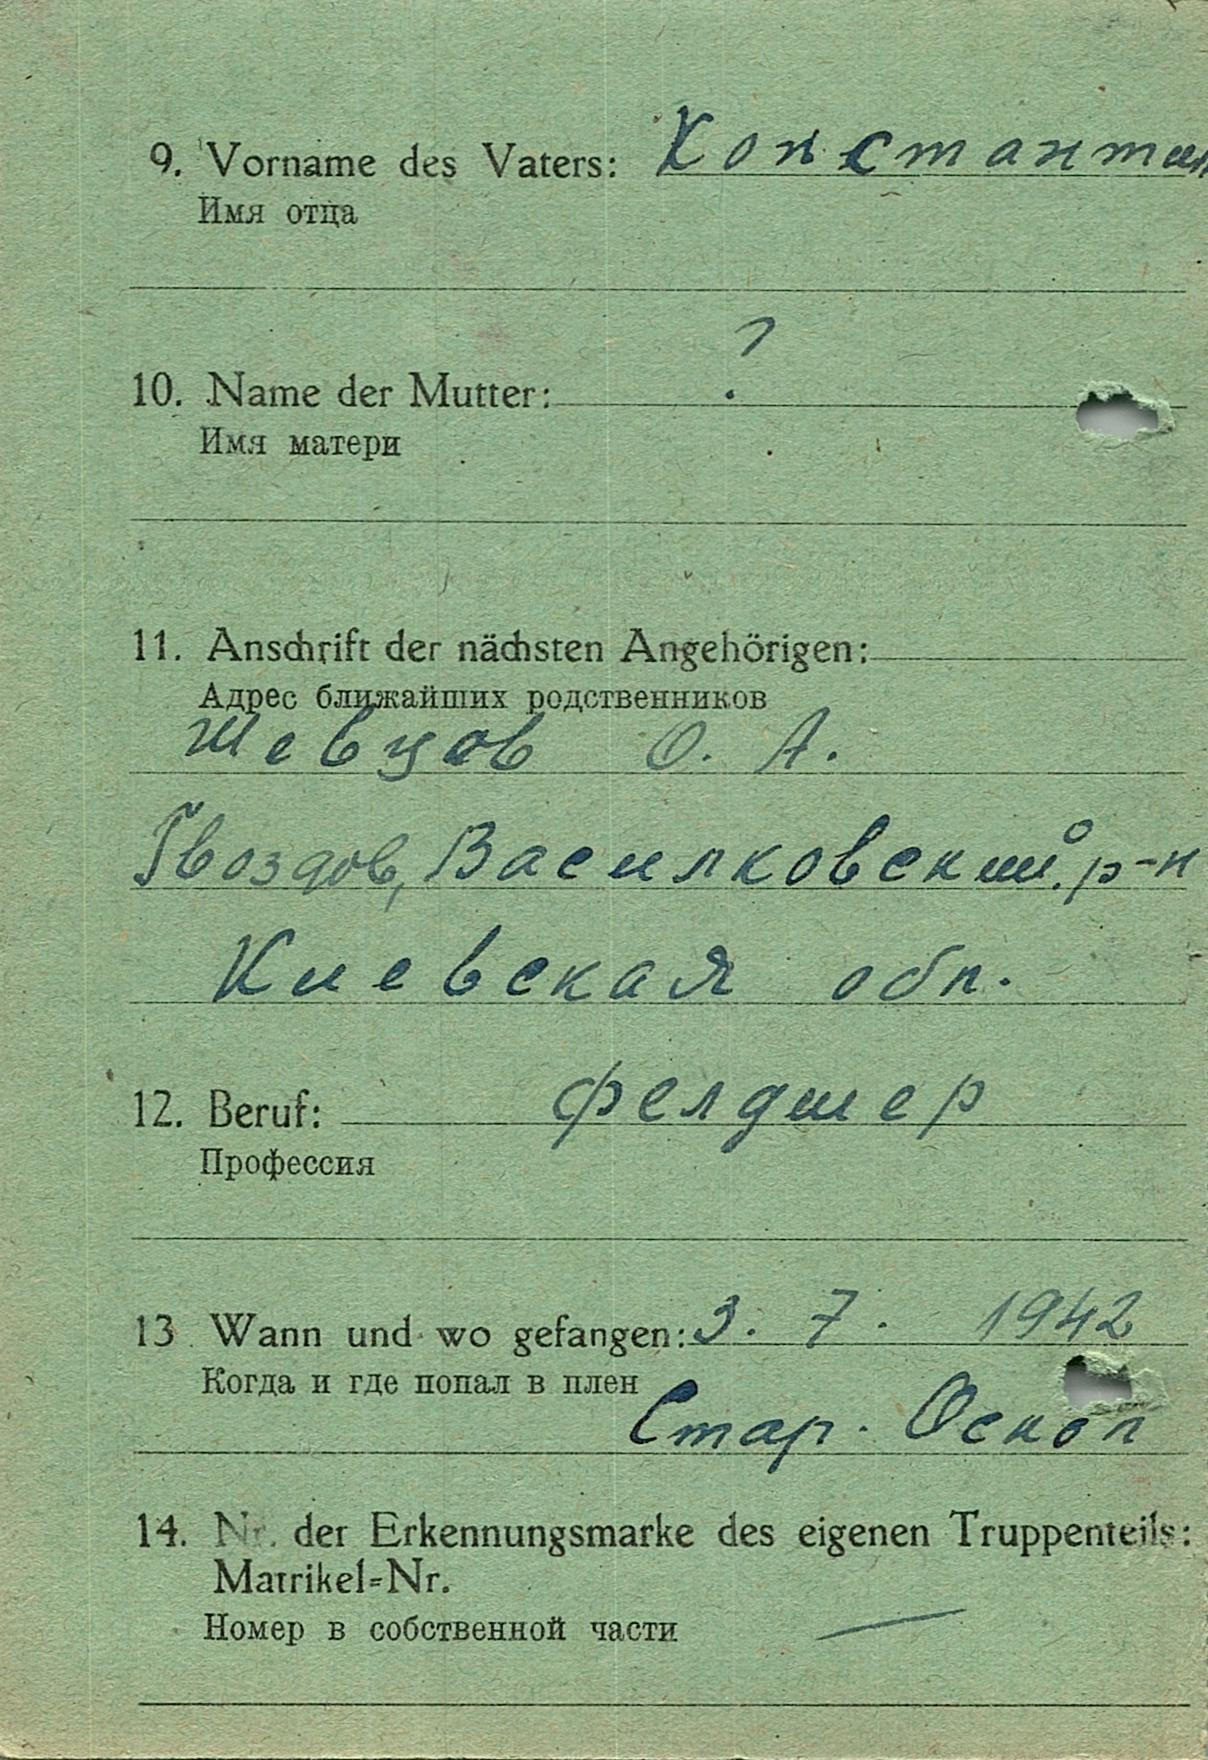 9. Vorname des Vaters: Константин
Имя отца
?
10. Name der Mutter:
Имя матери
11. Anschrift der nächsten Angehörigen:
Адрес ближайших родственников
Шевцов О. А.
Гвоздов, Василковский р-н
Киевская обл.
12. Beruf: фелдшер
Профессия
13. Wann und wo gefangen: 3. 7. 1942
Когда и где попал в плен
Стар. Оскол
14. Nr. der Erkennungsmarke des eigenen Truppenteils:
Matrikel=Nr.
Номер в собственной части —